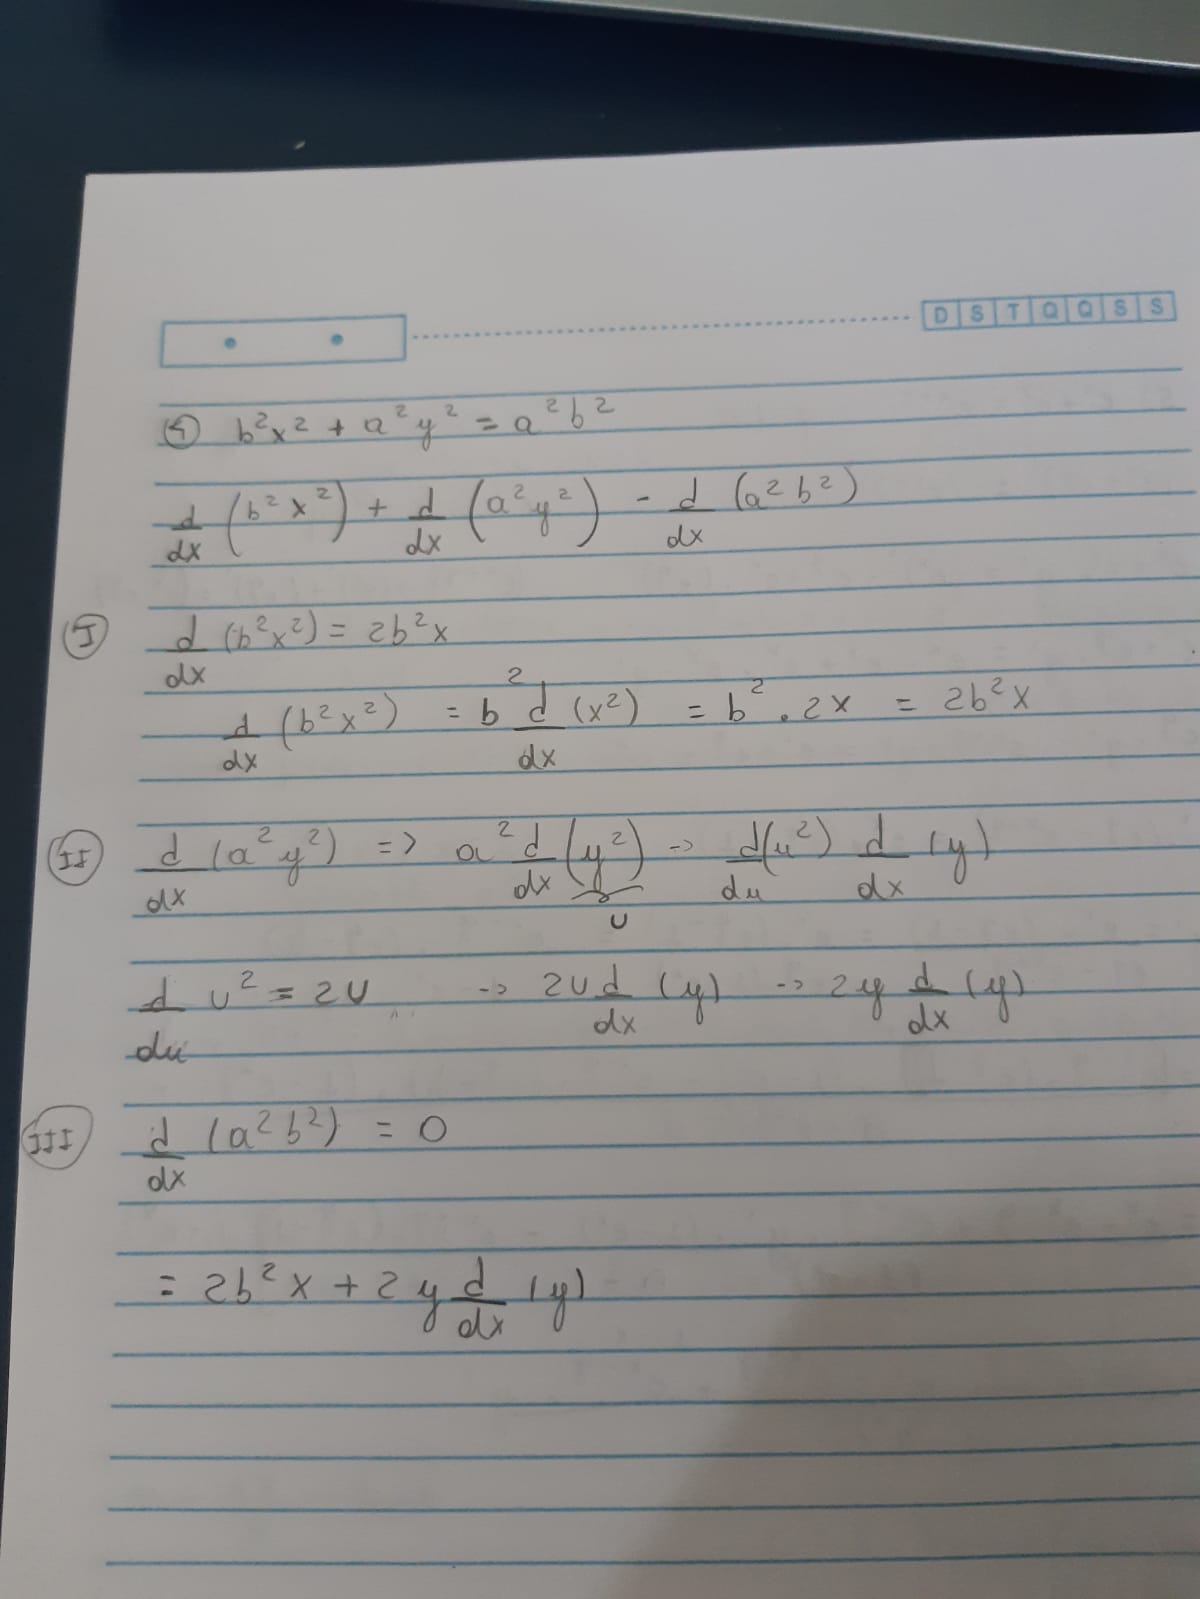 D S T Q Q S S
④ b²x² + a²y² = a²b²
d/dx (b²x²) + d/dx (a²y²) - d/dx (a²b²)
I d/dx (b²x²) = 2b²x
d/dx (b²x²) = b² d/dx (x²) = b² . 2x = 2b²x
II d/dx (a²y²) => a² d/dx (y²) -> d/du (u²) d/dx (y)
U
d/du u² = 2U -> 2U d/dx (y) -> 2y d/dx (y)
III d/dx (a²b²) = 0
= 2b²x + 2y d/dx (y)